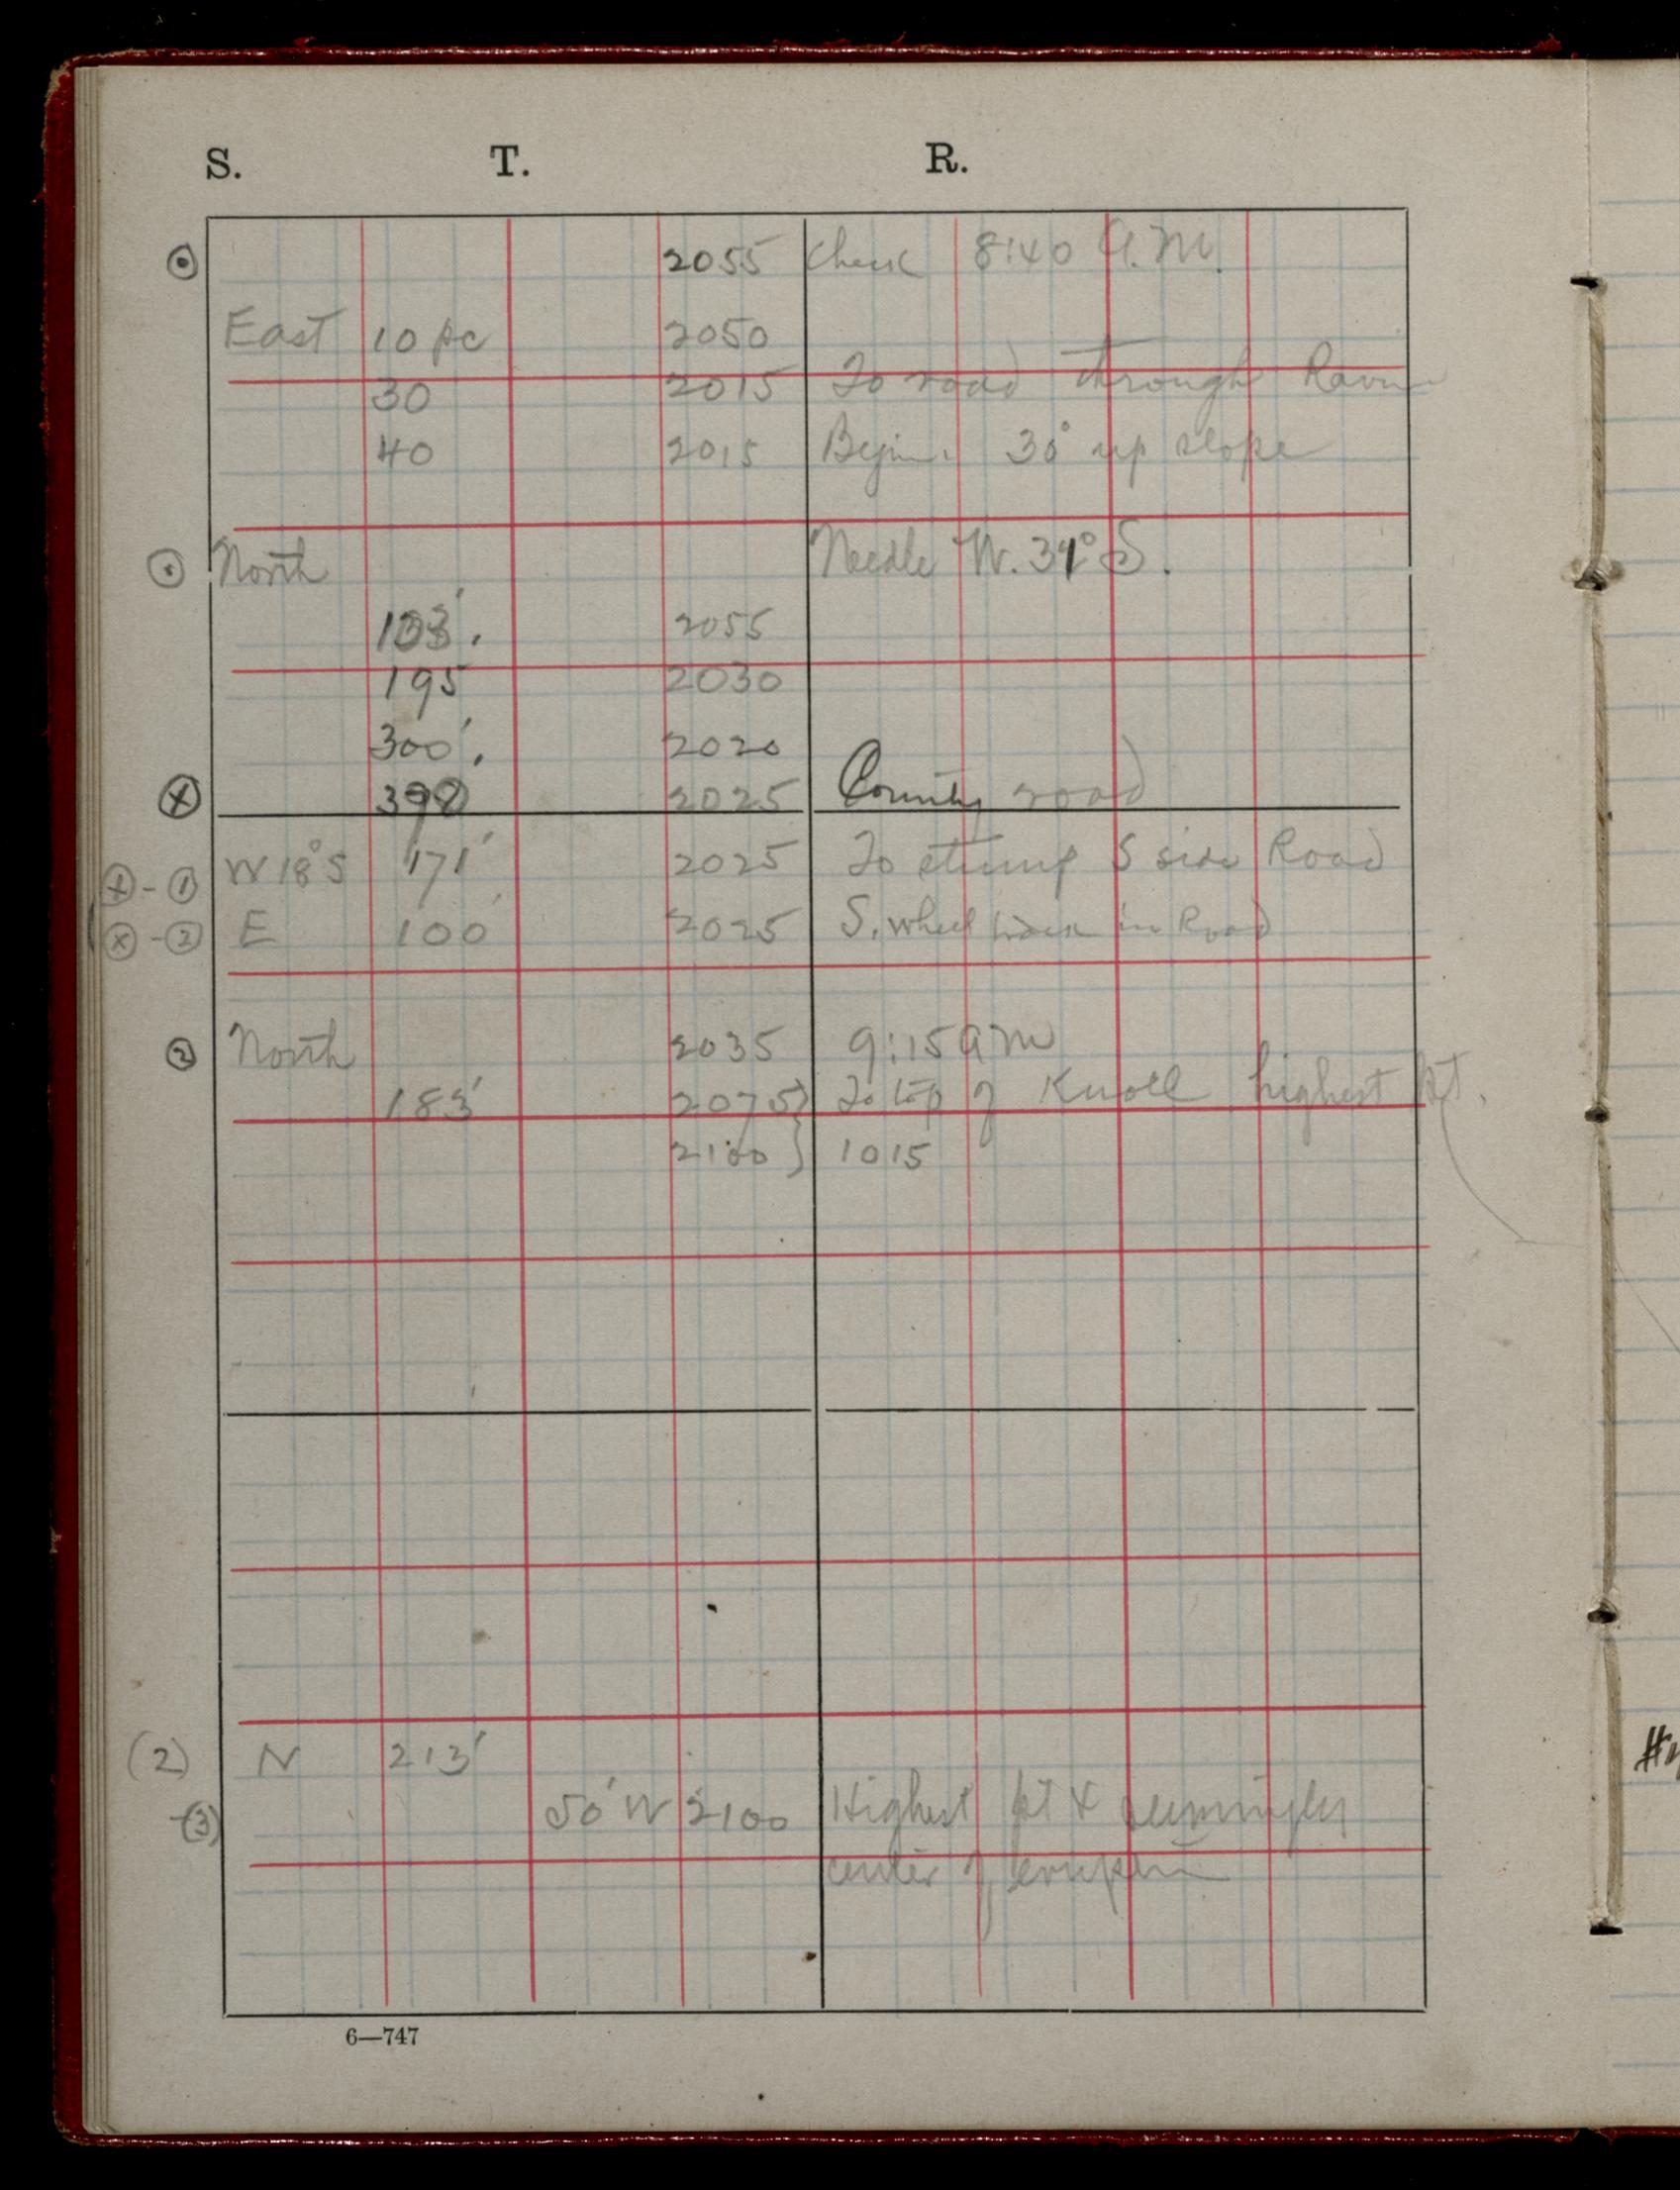 S. T. R.
2055 Check 8:40 A.M.
East 10 pc 2050
30 2015 To road through Ravine
40 2015 Begin 30° up slope
North Needle W. 34° S.
2055
195 2030
300'. 2020
X 2025 County road
X-1 W 18° S 171' 2025 To stump S side Road
X-2 E 100' 2025 S. wheel in Road
2 North 2035 9:15 am
183' 2075} To top of Knoll highest pt.
2100} 1015
(2) N 213'
-(3) 50' W 2100 Highest pt & seemingly
center of eruption
6—747
#